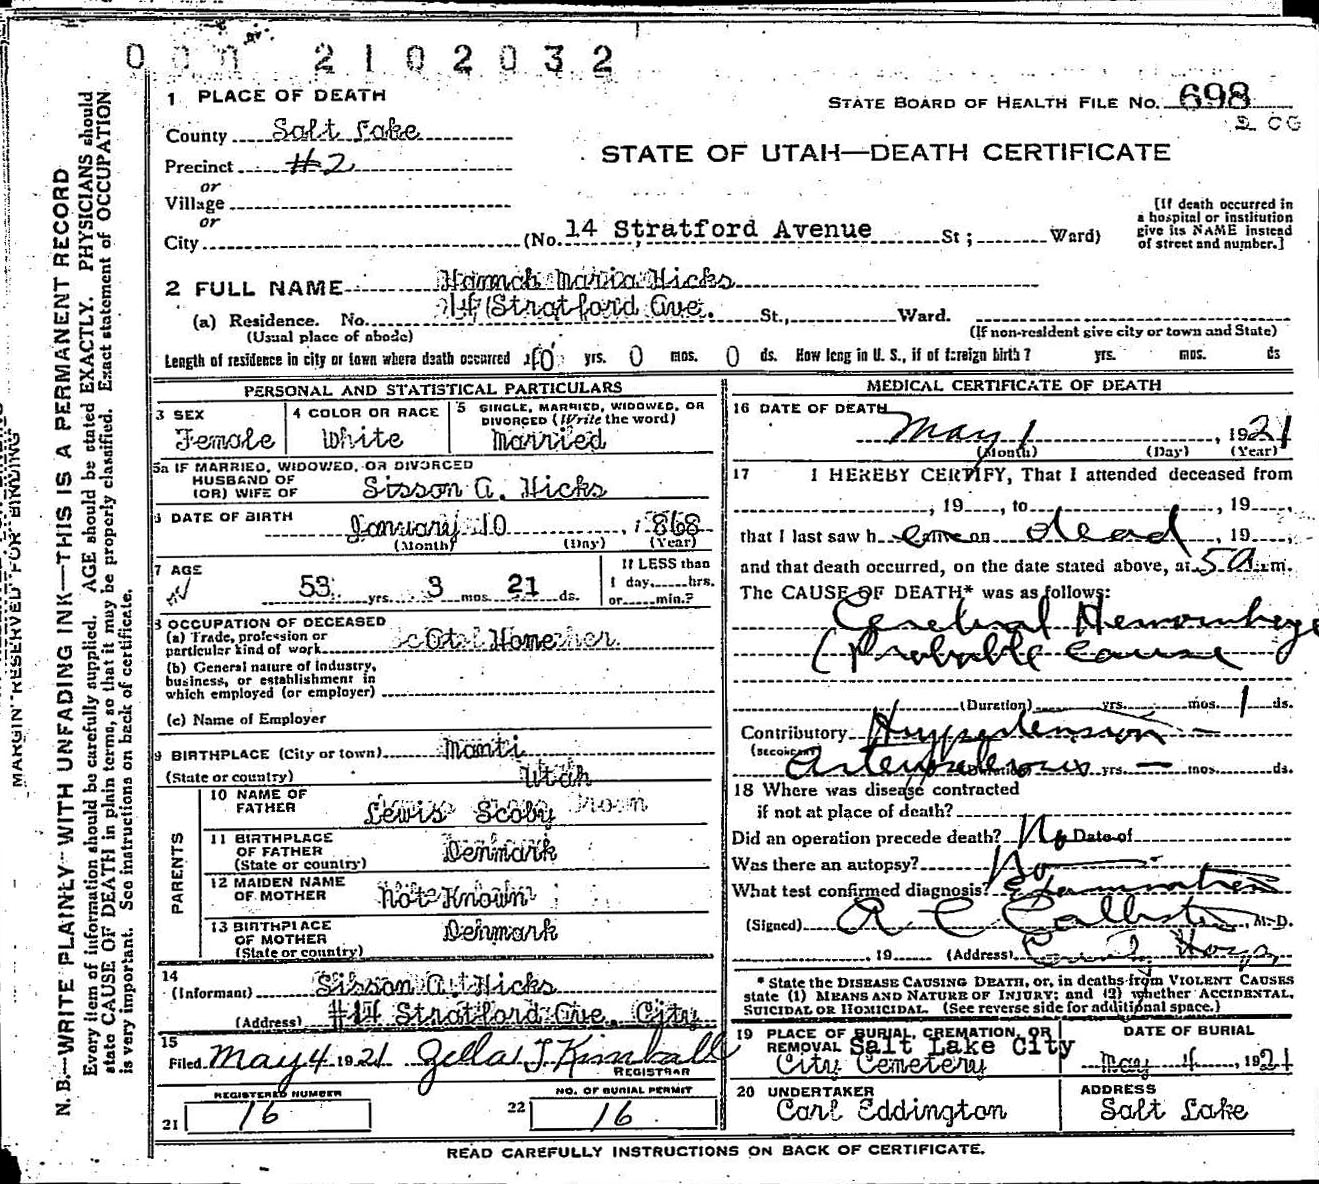 000 2102032
1 PLACE OF DEATH
STATE BOARD OF HEALTH FILE No. 698
2 CG
County Salt Lake
STATE OF UTAH—DEATH CERTIFICATE
Precinct #2
or
Village
or
City (No. 14 Stratford Avenue St; Ward)
[If death occurred in
a hospital or institution
give its NAME instead
of street and number.]
2 FULL NAME Hannah Maria Hicks
(a) Residence. No. 14 Stratford Ave. St., Ward.
(Usual place of abode) (If non-resident give city or town and State)
Length of residence in city or town where death occurred 40 yrs. 0 mos. 0 ds. How long in U. S., if of foreign birth? yrs. mos. ds
PERSONAL AND STATISTICAL PARTICULARS
3 SEX
Female
4 COLOR OR RACE
White
5 SINGLE, MARRIED, WIDOWED, OR
DIVORCED (Write the word)
Married
5a IF MARRIED, WIDOWED, OR DIVORCED
HUSBAND OF
(OR) WIFE OF Sisson A. Hicks
6 DATE OF BIRTH January 10, 1868
(Month) (Day) (Year)
7 AGE
53 yrs. 3 mos. 21 ds.
If LESS than
1 day hrs.
or min.?
8 OCCUPATION OF DECEASED
(a) Trade, profession or
particular kind of work At Home
(b) General nature of industry,
business, or establishment in
which employed (or employer)
(c) Name of Employer
9 BIRTHPLACE (City or town) Manti
(State or country) Utah
PARENTS
10 NAME OF
FATHER Lewis Scoby
11 BIRTHPLACE
OF FATHER Denmark
(State or country)
12 MAIDEN NAME
OF MOTHER Not Known
13 BIRTHPLACE
OF MOTHER Denmark
(State or country)
14
(Informant) Sisson A. Hicks
(Address) #14 Stratford Ave. City
15
Filed May 4 1921 Zella J Kimball
REGISTRAR
REGISTERED NUMBER
21 16
NO. OF BURIAL PERMIT
22 16
MEDICAL CERTIFICATE OF DEATH
16 DATE OF DEATH
May 1, 1921
(Month) (Day) (Year)
17 I HEREBY CERTIFY, That I attended deceased from
, 19 , to , 19
that I last saw h alive on dead, 19
and that death occurred, on the date stated above, at 5 A. m.
The CAUSE OF DEATH* was as follows:
Cerebral Hemorrhage
(Probable cause
(Duration) yrs. mos. 1 ds.
Contributory Hypertension
(SECONDARY)
(Duration) yrs. mos. ds.
18 Where was disease contracted
if not at place of death?
Did an operation precede death? No Date of
Was there an autopsy? No
What test confirmed diagnosis? Examination
(Signed) A C Callister, M. D.
, 19 (Address)
* State the DISEASE CAUSING DEATH, or, in deaths from VIOLENT CAUSES
state (1) MEANS AND NATURE OF INJURY; and (2) whether ACCIDENTAL,
SUICIDAL OR HOMICIDAL. (See reverse side for additional space.)
19 PLACE OF BURIAL, CREMATION, OR
REMOVAL Salt Lake City
City Cemetery
DATE OF BURIAL
May 4, 1921
20 UNDERTAKER
Carl Eddington
ADDRESS
Salt Lake
READ CAREFULLY INSTRUCTIONS ON BACK OF CERTIFICATE.
MARGIN RESERVED FOR BINDING
N. B.—WRITE PLAINLY WITH UNFADING INK—THIS IS A PERMANENT RECORD
Every item of information should be carefully supplied. AGE should be stated EXACTLY. PHYSICIANS should
state CAUSE OF DEATH in plain terms, so that it may be properly classified. Exact statement of OCCUPATION
is very important. See instructions on back of certificate.